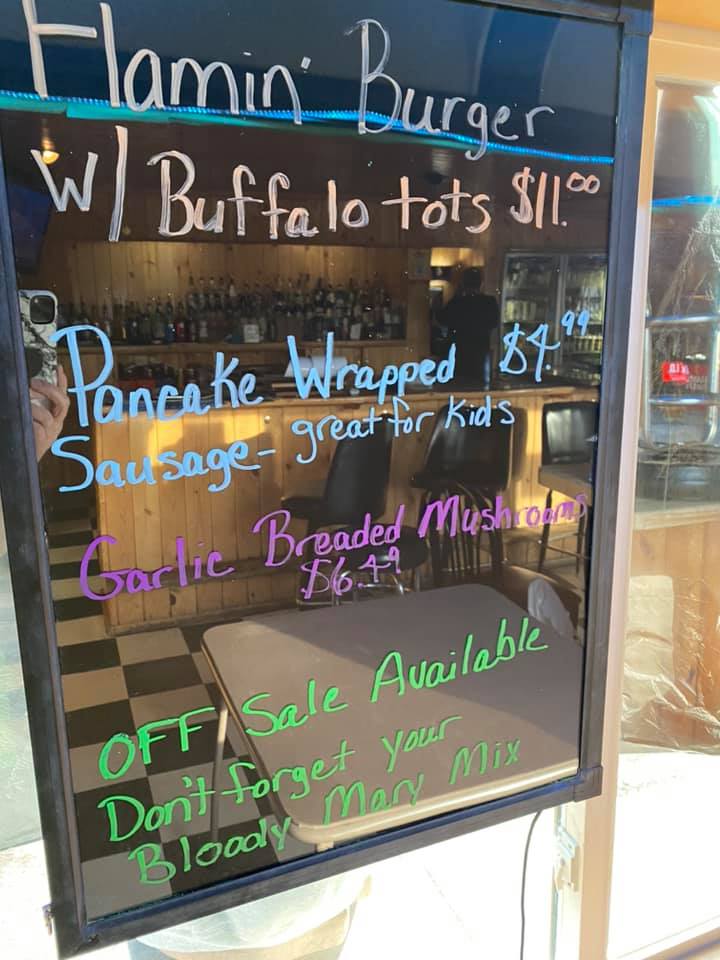 Flamin' Burger
w/ Buffalo tots $11.00
Pancake Wrapped $4.99
Sausage - great for Kids
Garlic Breaded Mushrooms
$6.49
OFF Sale Available
Don't forget your
Bloody Mary Mix